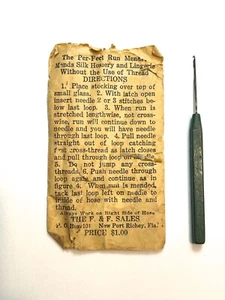 The Per-Fect Run Mender
Mends Silk Hosery and Lingerie
Without the Use of Thread
DIRECTIONS
1. Place stocking over top of
small glass. 2. With latch open
insert needle 2 or 3 stitches below
last loop. 3. When run is
stretched lengthwise, not cross-
wise, run will continue down to
needle and you will have needle
through last loop. 4. Pull needle
straight out of loop catching
first cross-thread as latch closes
and pull through loop on
5. Do not jump any cross-
threads. 6. Push needle through
loop again and continue as in
figure 4. When run is mended,
tack last loop left on needle to
inside of hose with needle and
thread.
Always Work on Right Side of Hose.
THE F. & F. SALES
P. O. Box 101 New Port Richey, Fla.
PRICE $1.00